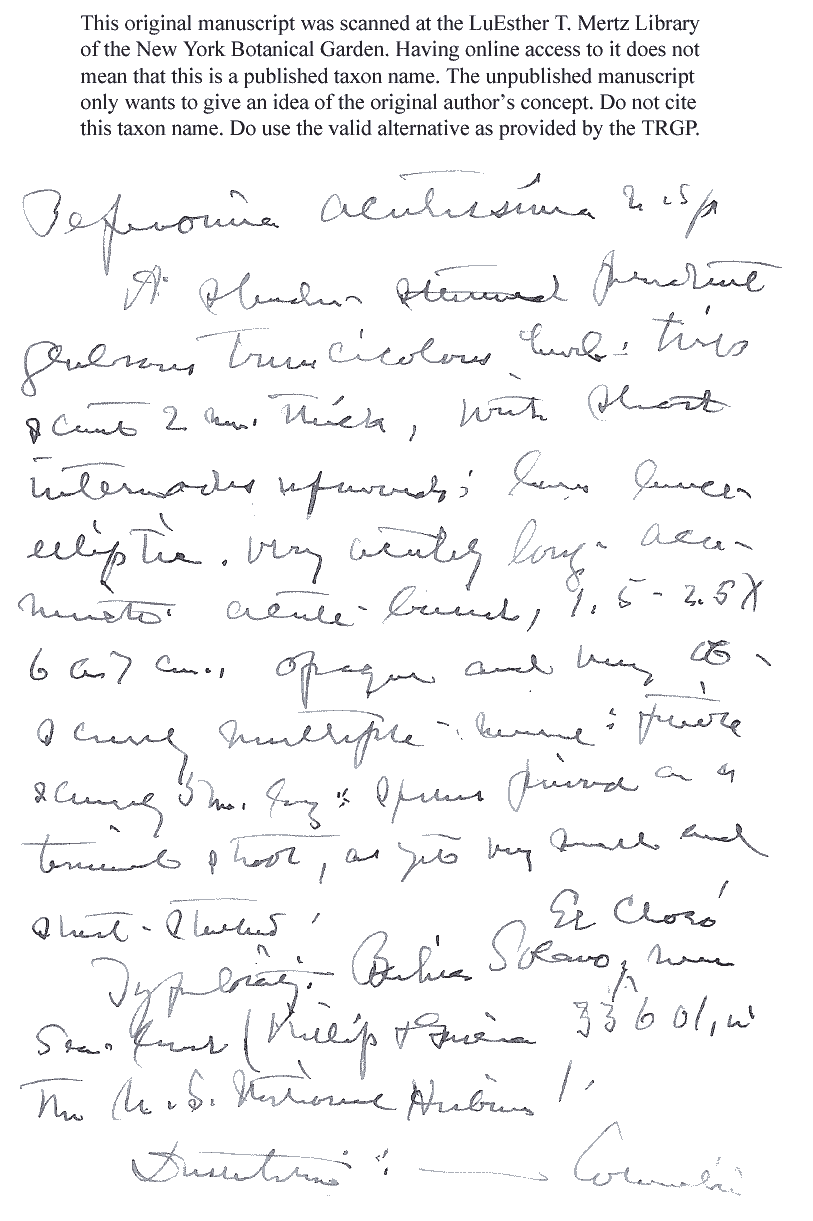 This original manuscript was scanned at the LuEsther T. Mertz Library
of the New York Botanical Garden. Having online access to it does not
mean that this is a published taxon name. The unpublished manuscript
only wants to give an idea of the original author's concept. Do not cite
this taxon name. Do use the valid alternative as provided by the TRGP.
Peperomia acutissima n. sp
A slender stemmed pendent
glabrous truncicolous herb: twigs
scant 2 mm. thick, with short
internodes upwards; lvs lance-
elliptic. very acutely long-acu-
minate acute-based, 1.5-2.5X
6 or 7 cm., opaque and very ob-
scurely multiple-: petiole
scarcely 5 mm. long: spikes on a
terminal shoot, as yet very small and
short-stalked
El Chocó
Type locality: Bahia Solano, near
Sea-level (Killip & Garcia 33601, in
The U.S. National Herbarium
Distribution: Colombia